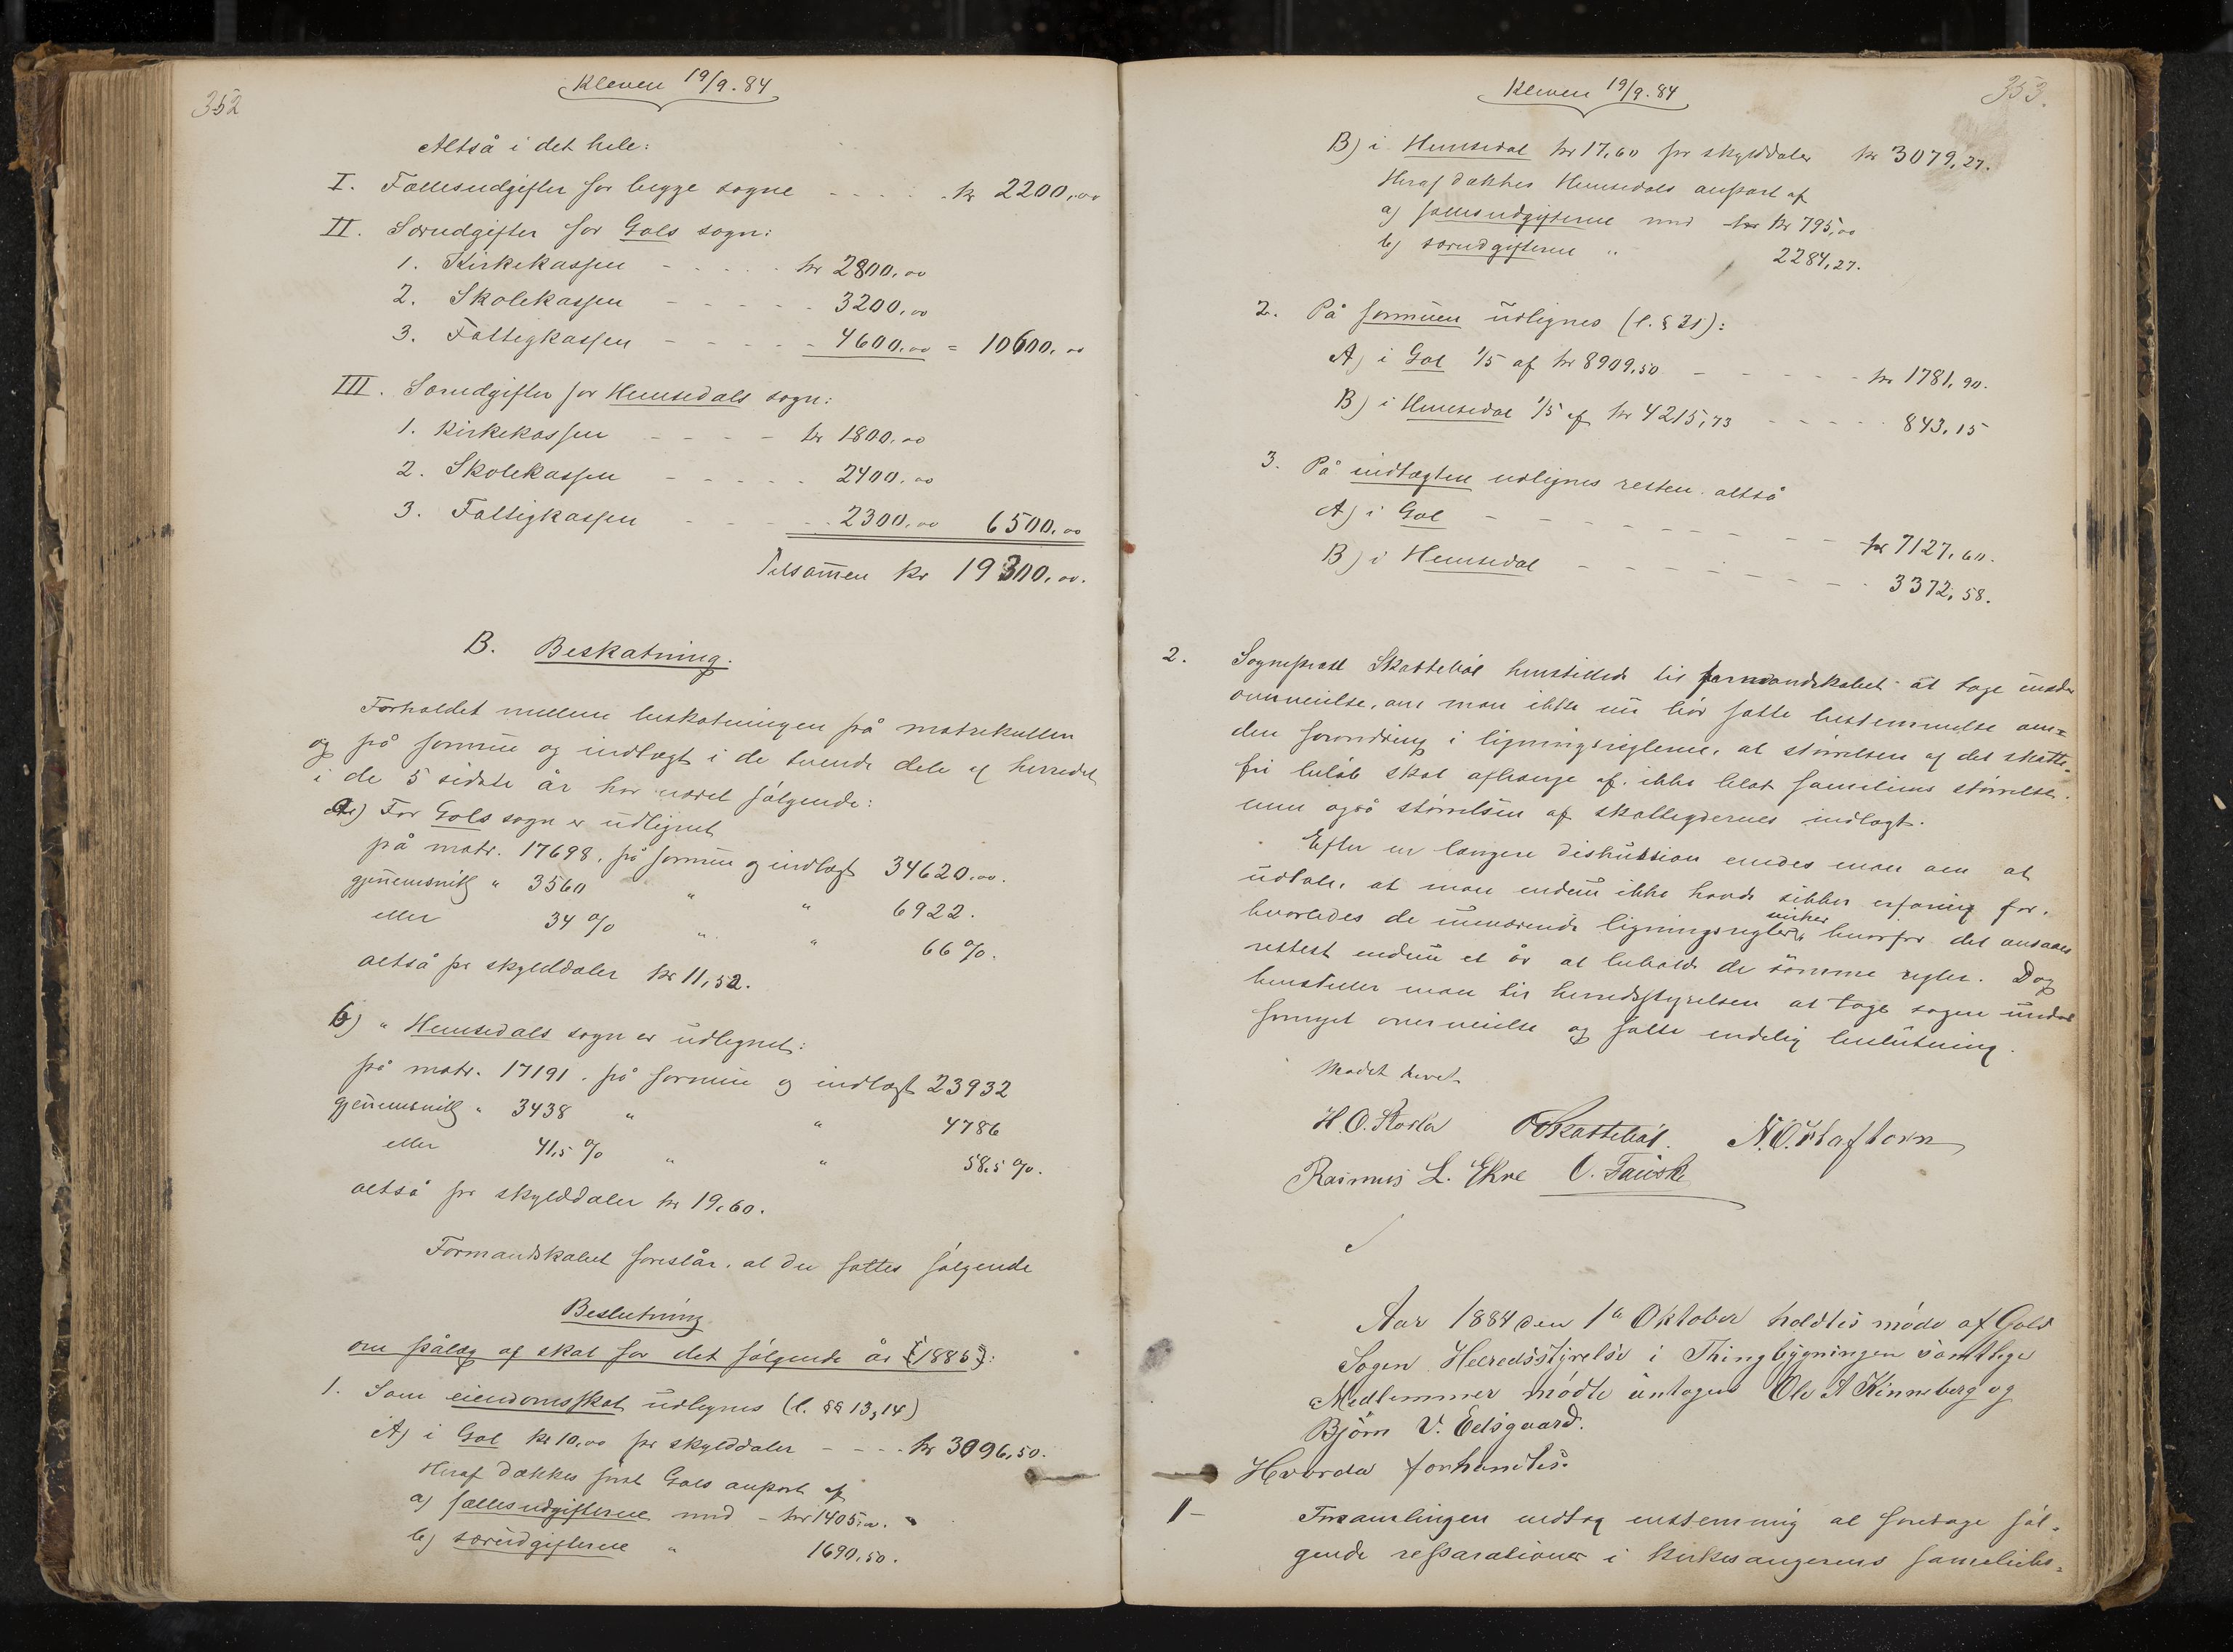 352
Kleven 19/9.84
Altså i det hele:
I. Fællesudgifter for begge sogne - - - - kr 2200,00
II. Særudgifter for Gols sogn:
1. Kirkekassen - - - - - kr 2800,00
2. Skolekassen - - - - - 3200,00
3. Fattigkassen - - - - - 4600,00 = 10600,00
III. Særudgifter for Hemsedals sogn:
1. Kirkekassen - - - - kr 1800,00
2. Skolekassen - - - - - 2400,00
3. Fattigkassen - - - - - 2300,00 6500,00
Tilsam̄en kr 19300,00.
B. Beskatning.
Forholdet mellem beskatningen på matrikullen
og på formue og indtægt i de tvende dele af herredet
i de 5 sidste år har været følgende:
a) For Gols sogn er udlignet
på matr. 17698, på formue og indtægt 34620,00.
gjen̄emsnitlig " 3560 " " 6922.
eller 34 % " " 66 %.
altså pr skylddaler kr 11,52.
b) " Hemsedals sogn er udlignet:
på matr. 17191. på formue og indtægt 23932
gjen̄emsnitlig " 3438 " " 4786
eller 41,5 % " " 58,5 %.
altså pr skylddaler kr 19,60.
Formandskabet foreslår, at der fattes følgende
Beslutning
om pålæg af skat for det følgende år (1885):
1. Som eiendomsskat udlignes (l. §§ 13,14)
A) i Gol kr 10,00 pr skylddaler - - - - kr 3096,50.
Heraf dækkes først Gols anpart af
a) fællesudgifterne med - kr 1405,00.
b) særudgifterne " 1690,50.
353.
Kleven 19/9.84
B) i Hemsedal kr 17,60 pr skylddaler kr 3079,27.
Heraf dækkes Hemsedals anpart af
a) fællesudgifterne med kr kr 795,00
b) særudgifterne " 2284,27.
2. På formuen udlignes (l. § 31):
A) i Gol 1/5 af kr 8909,50 - - - - - kr 1781,90.
B) i Hemsedal 1/5 af kr 4215,73 - - - - - 843,15
3. På indtægten udlignes resten altså
A) i Gol - - - - - - - - - - kr 7127,60.
B) i Hemsedal - - - - - - - - - 3372,58.
2. Sogneprest Skattebøl henstillede til formandskabet at tage under
overveielse, om man ikke nu bør fatte bestemmelse om-
den forandring i ligningsreglerne, at størrelsen af det skatte-
fri beløb skal afhænge af ikke blot familiens størrelse.
men også størrelsen af skatteydernes indtægt.
Efter en længere diskussion enedes man om at
udtale, at man endnu ikke havde sikker erfaring for,
hvorledes de nuværende ligningsregler virker, hvorfor det ansaaes
rettest endnu et år at beholde de samme regler. Dog
henstiller man til herredsstyrelsen at tage sagen under
fornyet overveielse og fatte endelig beslutning.
Mødet hævet.
H. O. Storla OSkattebøl. N. O. Haftorn
Rasmus L. Ekre O. Fauske
Aar 1884 den 1te Oktober holdtes møde af Gols
Sogns Herredsstyrelse i Thingbygningen samtlige
Medlemmer mødte untagens Ole A Kinneberg og
Bjørn V. Eelsgaard.
Hvorda forhandtes.
1- Forsamlingen vedtog enstemmig at foretage føl-
gende reparationer i kirkesangerens familiebo-